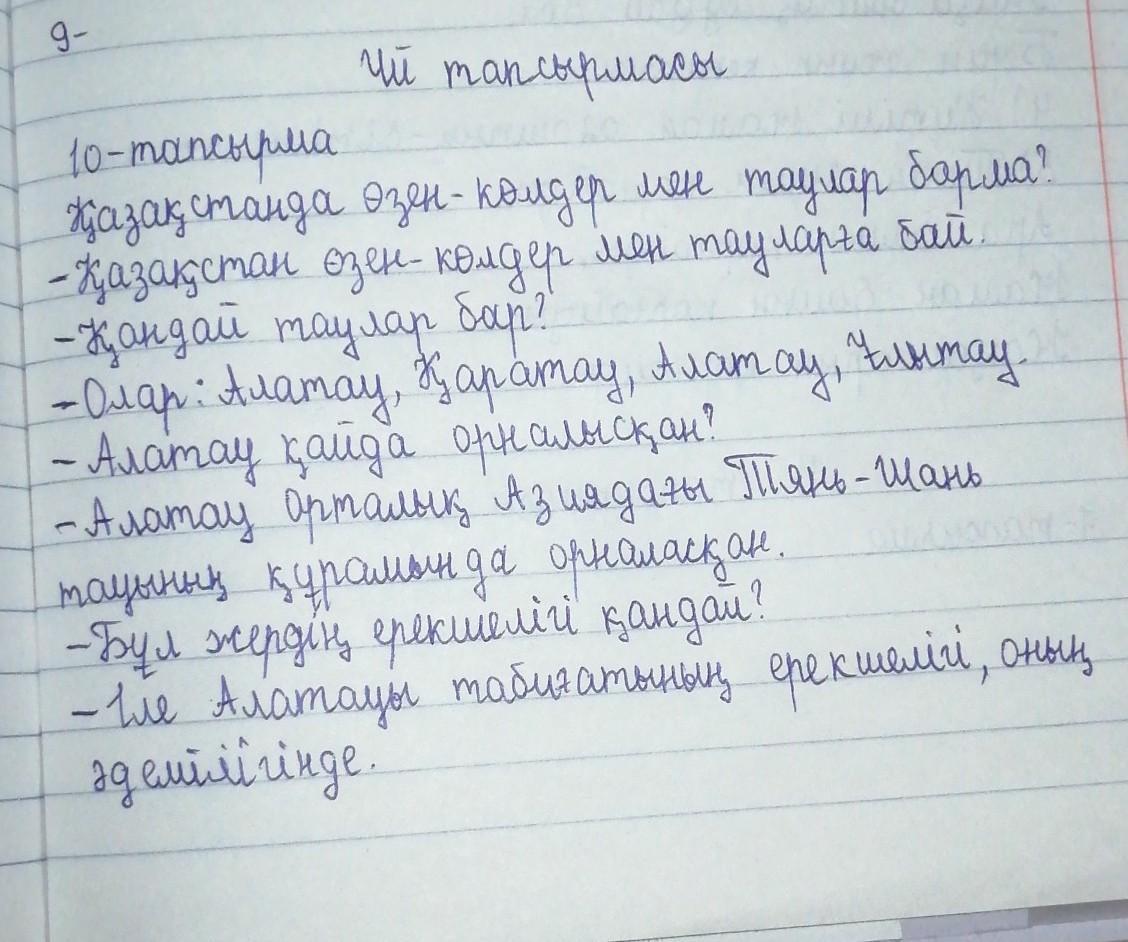 9-
Үй тапсырмасы
10-тапсырма
Қазақстанда өзен-көлдер мен таулар барма?
-Қазақстан өзен-көлдер мен тауларға бай.
-Қандай таулар бар?
-Олар: Алатау, Қаратау, Алатау, Ұлытау.
- Алатау қайда орналысқан?
-Алатау Орталық Азиядағы Тянь-Шань
тауының құрамында орналасқан.
-Бұл жердің ерекшелігі қандай?
-Іле Алатауы табиғатының ерекшелігі, оның
әдемілігінде.